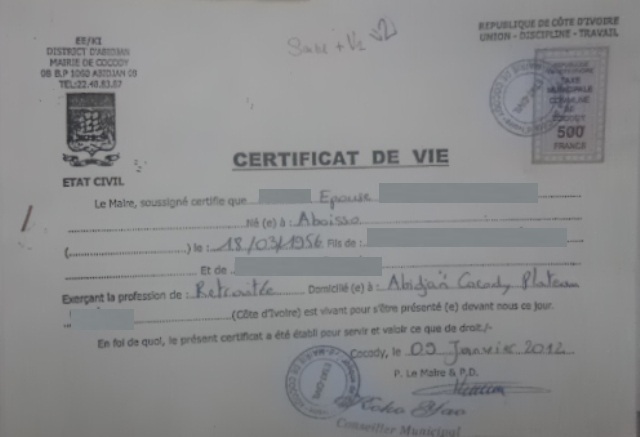 EE/KI
DISTRICT D'ABIDJAN
MAIRIE DE COCODY
08 B.P 1060 ABIDJAN 08
TEL:22.48.83.67
REPUBLIQUE DE CÔTE D'IVOIRE
UNION - DISCIPLINE - TRAVAIL
TAXE
MUNICIPALE
COMMUNE
DE
COCODY
500
FRANCS
ETAT CIVIL
CERTIFICAT DE VIE
Le Maire, soussigné certifie que Epouse
Né (e) à : Aboisso
( ) le : 18/03/1956 Fils de :
Et de
Exerçant la profession de : Retraitée Domicilié (e) à : Abidjan Cocody Plateau
(Côte d'Ivoire) est vivant pour s'être présenté (e) devant nous ce jour.
En foi de quoi, le présent certificat a été établi pour servir et valoir ce que de droit./-
Cocody, le 09 Janvier 2012
P. Le Maire & P.D.
Conseiller Municipal